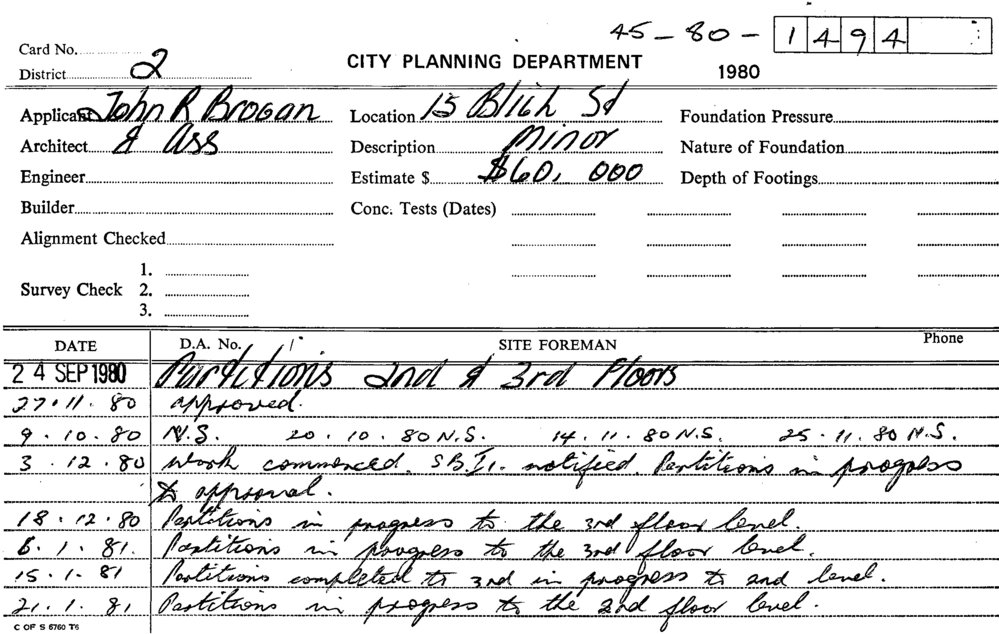 45 - 80 - 1494
Card No.
District 2
CITY PLANNING DEPARTMENT
1980
Applicant John R Brogan
Location 15 Bligh St
Foundation Pressure
Architect & Ass
Description Minor
Nature of Foundation
Engineer
Estimate $ $60, 000
Depth of Footings
Builder
Conc. Tests (Dates)
Alignment Checked
1.
Survey Check 2.
3.
DATE D.A. No. SITE FOREMAN Phone
24 SEP 1980 Partitions 2nd & 3rd Floors
27.11.80 approved.
9.10.80 N.S. 20.10.80 N.S. 14.11.80 N.S. 25.11.80 N.S.
3.12.80 Work commenced. S.B.I. notified. Partitions in progress
to approval.
18.12.80 Partitions in progress to the 3rd floor level.
6.1.81. Partitions in progress to the 3rd floor level.
15.1.81 Partitions completed to 3rd in progress to 2nd level.
21.1.81 Partitions in progress to the 2nd floor level.
C OF S 6760 T6